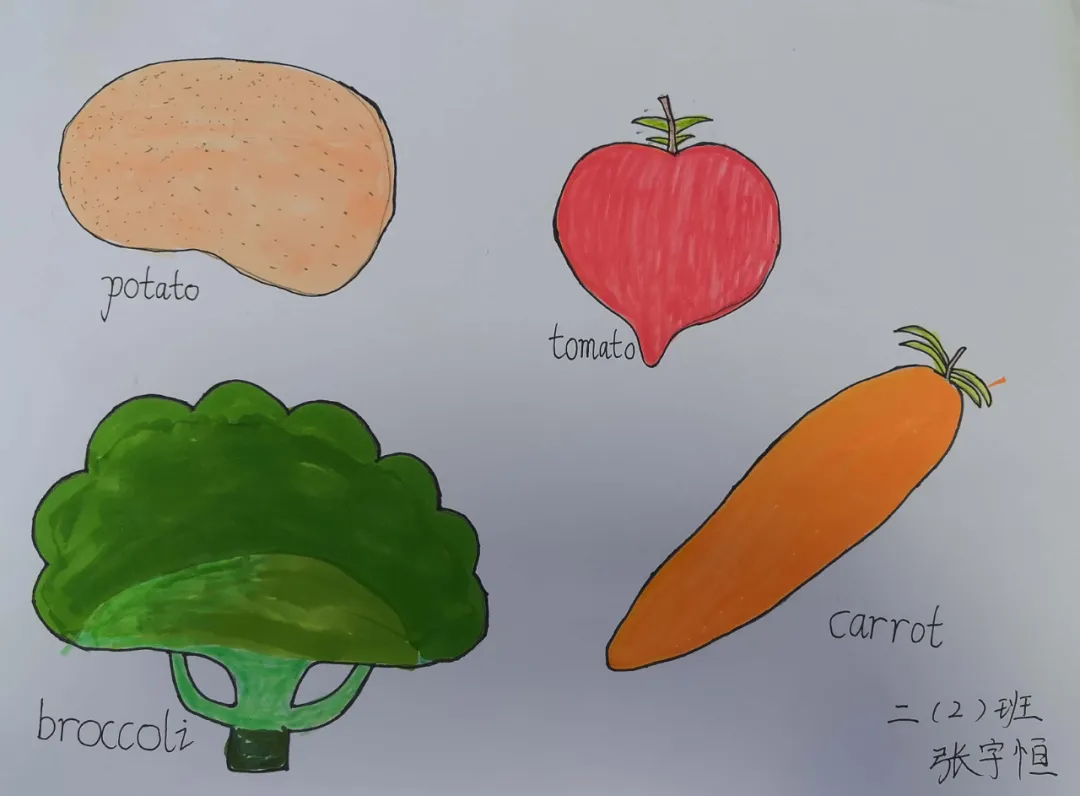 potato
tomato
carrot
broccoli
二（2）班
张宇恒